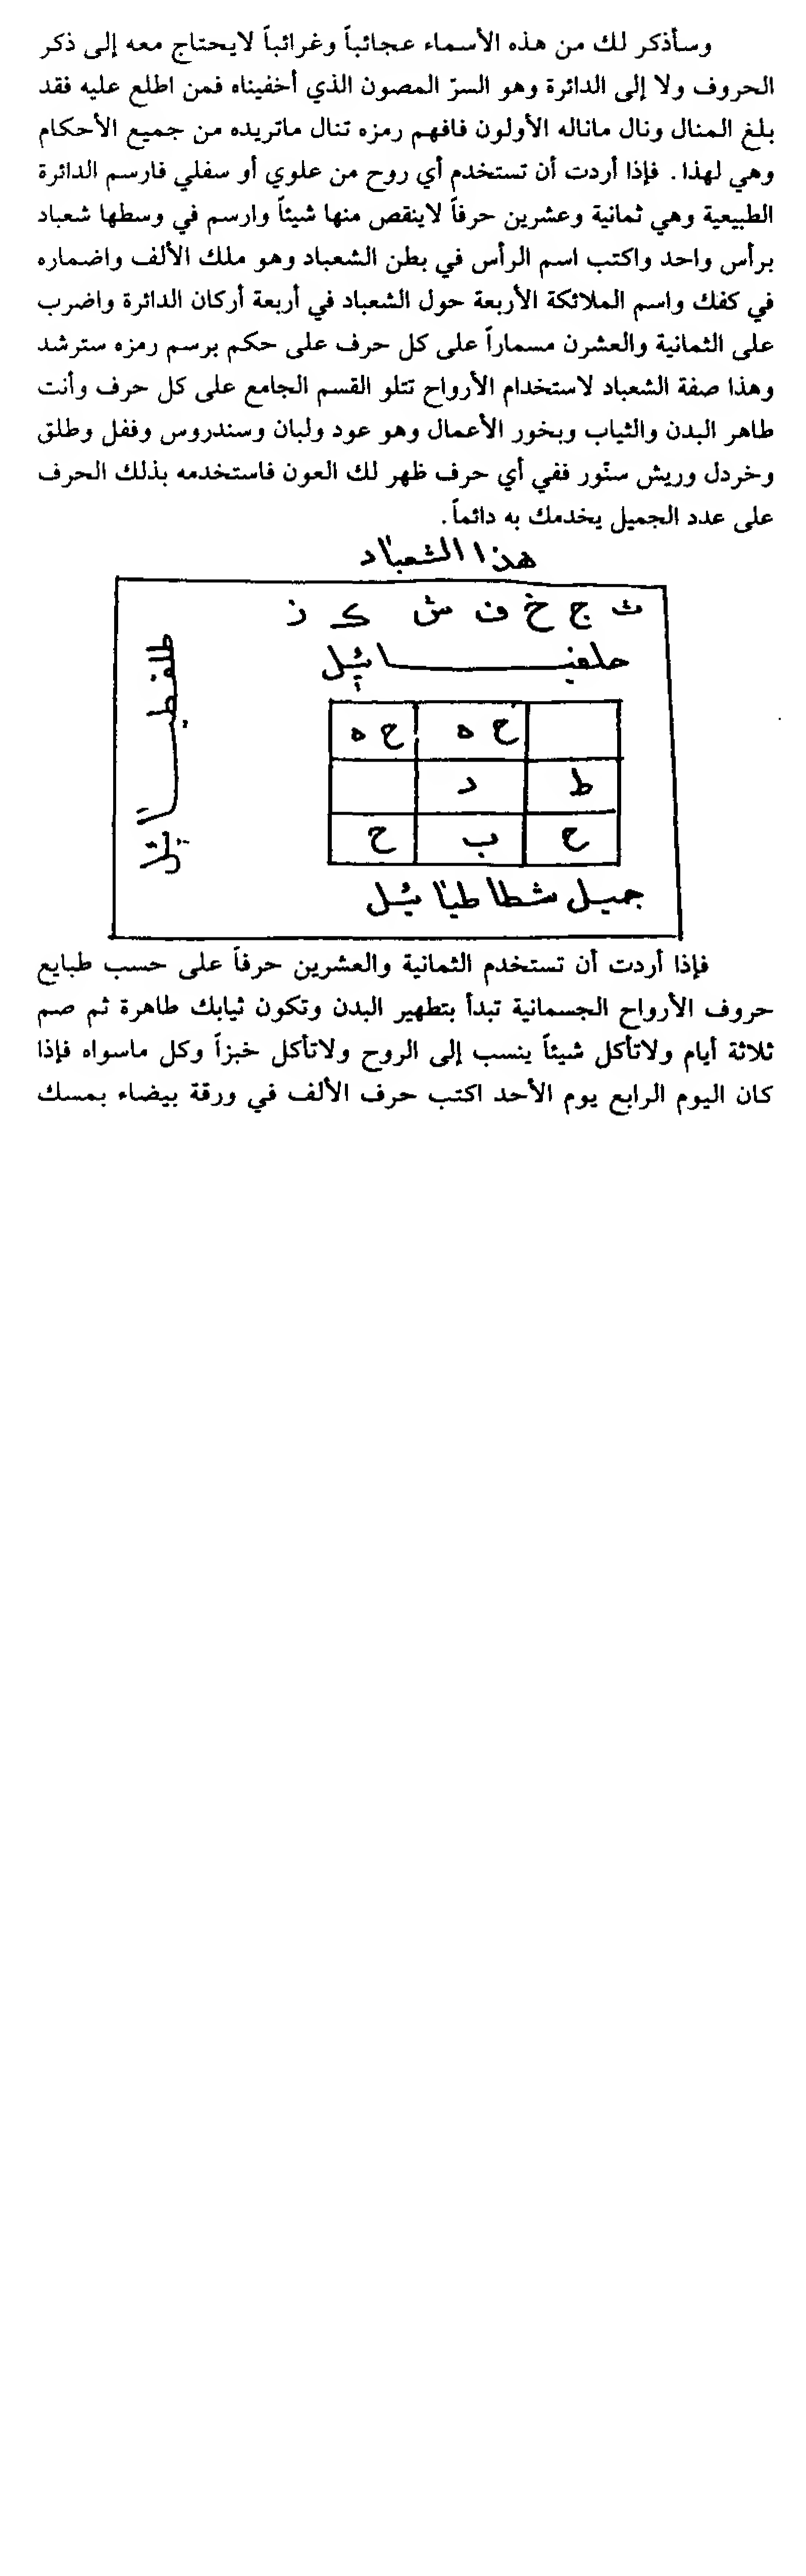 وسأذكر لك من هذه الأسماء عجائباً وغرائباً لايحتاج معه إلى ذكر
الحروف ولا إلى الدائرة وهو السرّ المصون الذي أخفيناه فمن اطلع عليه فقد
بلغ المنال ونال ماناله الأولون فافهم رمزه تنال ماتريده من جميع الأحكام
وهي لهذا. فإذا أردت أن تستخدم أي روح من علوي أو سفلي فارسم الدائرة
الطبيعية وهي ثمانية وعشرين حرفاً لاينقص منها شيئاً وارسم في وسطها شعباد
برأس واحد واكتب اسم الرأس في بطن الشعباد وهو ملك الألف واضماره
في كفك واسم الملائكة الأربعة حول الشعباد في أربعة أركان الدائرة واضرب
على الثمانية والعشرن مسماراً على كل حرف على حكم برسم رمزه سترشد
وهذا صفة الشعباد لاستخدام الأرواح تتلو القسم الجامع على كل حرف وأنت
طاهر البدن والثياب وبخور الأعمال وهو عود ولبان وسندروس وفقل وطلق
وخردل وريش سنّور ففي أي حرف ظهر لك العون فاستخدمه بذلك الحرف
على عدد الجميل يخدمك به دائماً.
هذا الشعباد
ث ج خ ف ش ك ز
ح ه ح ه
ط د
ح ب ح
جميل شطا طيائيل
فإذا أردت أن تستخدم الثمانية والعشرين حرفاً على حسب طبايع
حروف الأرواح الجسمانية تبدأ بتطهير البدن وتكون ثيابك طاهرة ثم صم
ثلاثة أيام ولاتأكل شيئاً ينسب إلى الروح ولاتأكل خبزاً وكل ماسواه فإذا
كان اليوم الرابع يوم الأحد اكتب حرف الألف في ورقة بيضاء بمسك